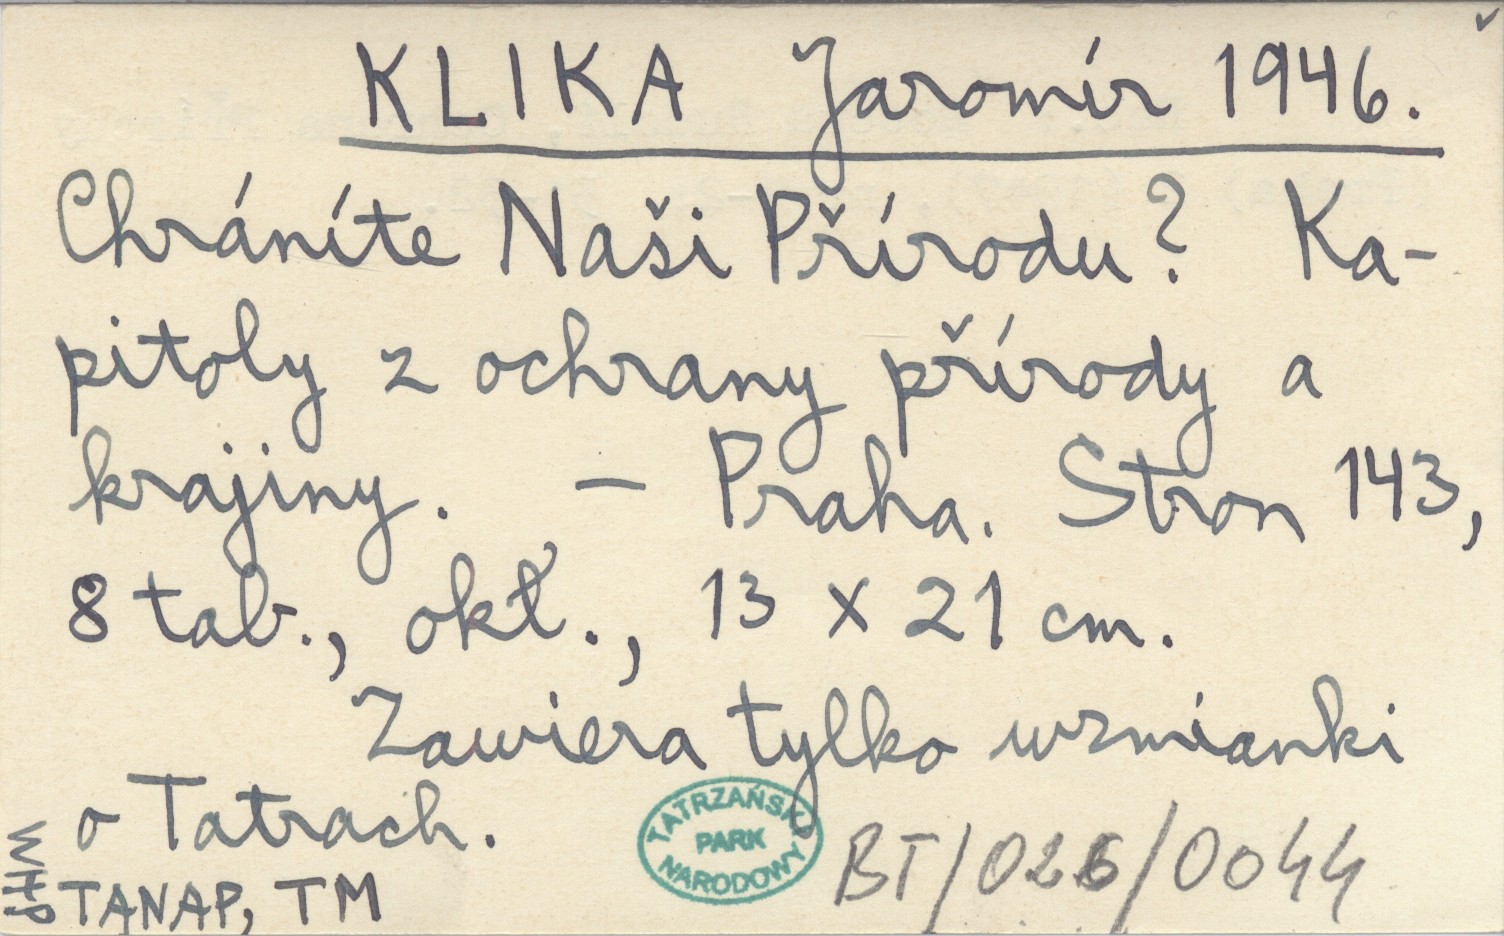 KLIKA Jaromír 1946.
Chráníte Naši Přírodu? Ka-
pitoly z ochrany přírody a
krajiny. – Praha. Stron 143,
8 tab., okł., 13 x 21 cm.
Zawiera tylko wzmianki
o Tatrach.
TATRZAŃSKI
PARK
NARODOWY
BT/026/0044
WHP
TANAP, TM